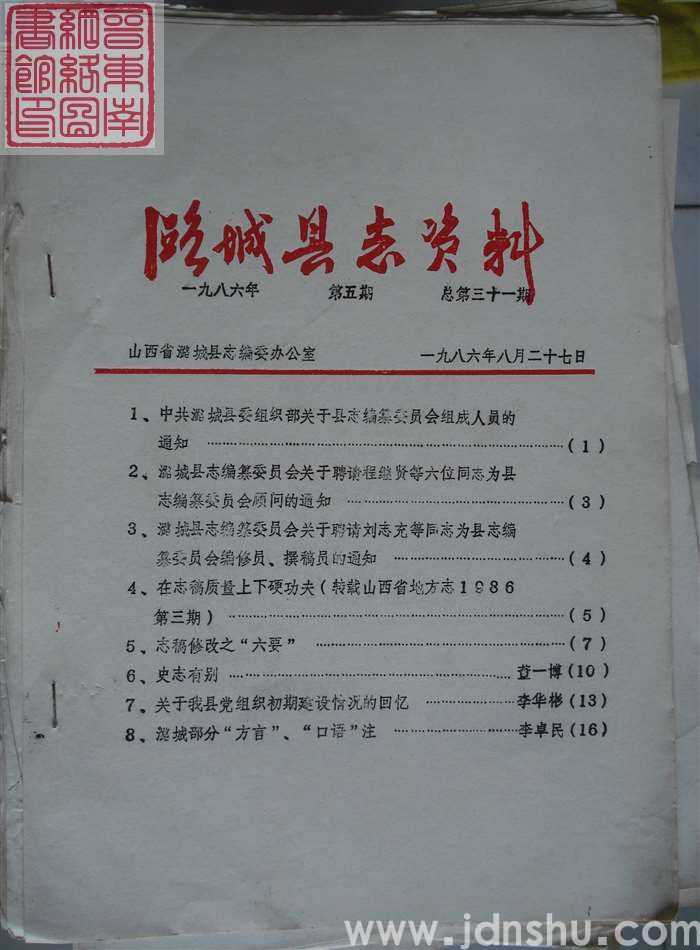 晋东南
网络图
书馆印
潞城县志资料
一九八六年 第五期 总第三十一期
山西省潞城县志编委办公室 一九八六年八月二十七日
1、中共潞城县委组织部关于县志编纂委员会组成人员的
通知 ……………………………………………………(1)
2、潞城县志编纂委员会关于聘请程继贤等六位同志为县
志编纂委员会顾问的通知 ………………………………(3)
3、潞城县志编纂委员会关于聘请刘志充等同志为县志编
纂委员会编修员、撰稿员的通知 …………………………(4)
4、在志稿质量上下硬功夫(转载山西省地方志1986
第三期) ……………………………………………………(5)
5、志稿修改之“六要” ……………………………………(7)
6、史志有别 …………………………………………查一博(10)
7、关于我县党组织初期建设情况的回忆 ……………李华彬(13)
8、潞城部分“方言”、“口语”注 …………………李卓民(16)
www.jdnshu.com